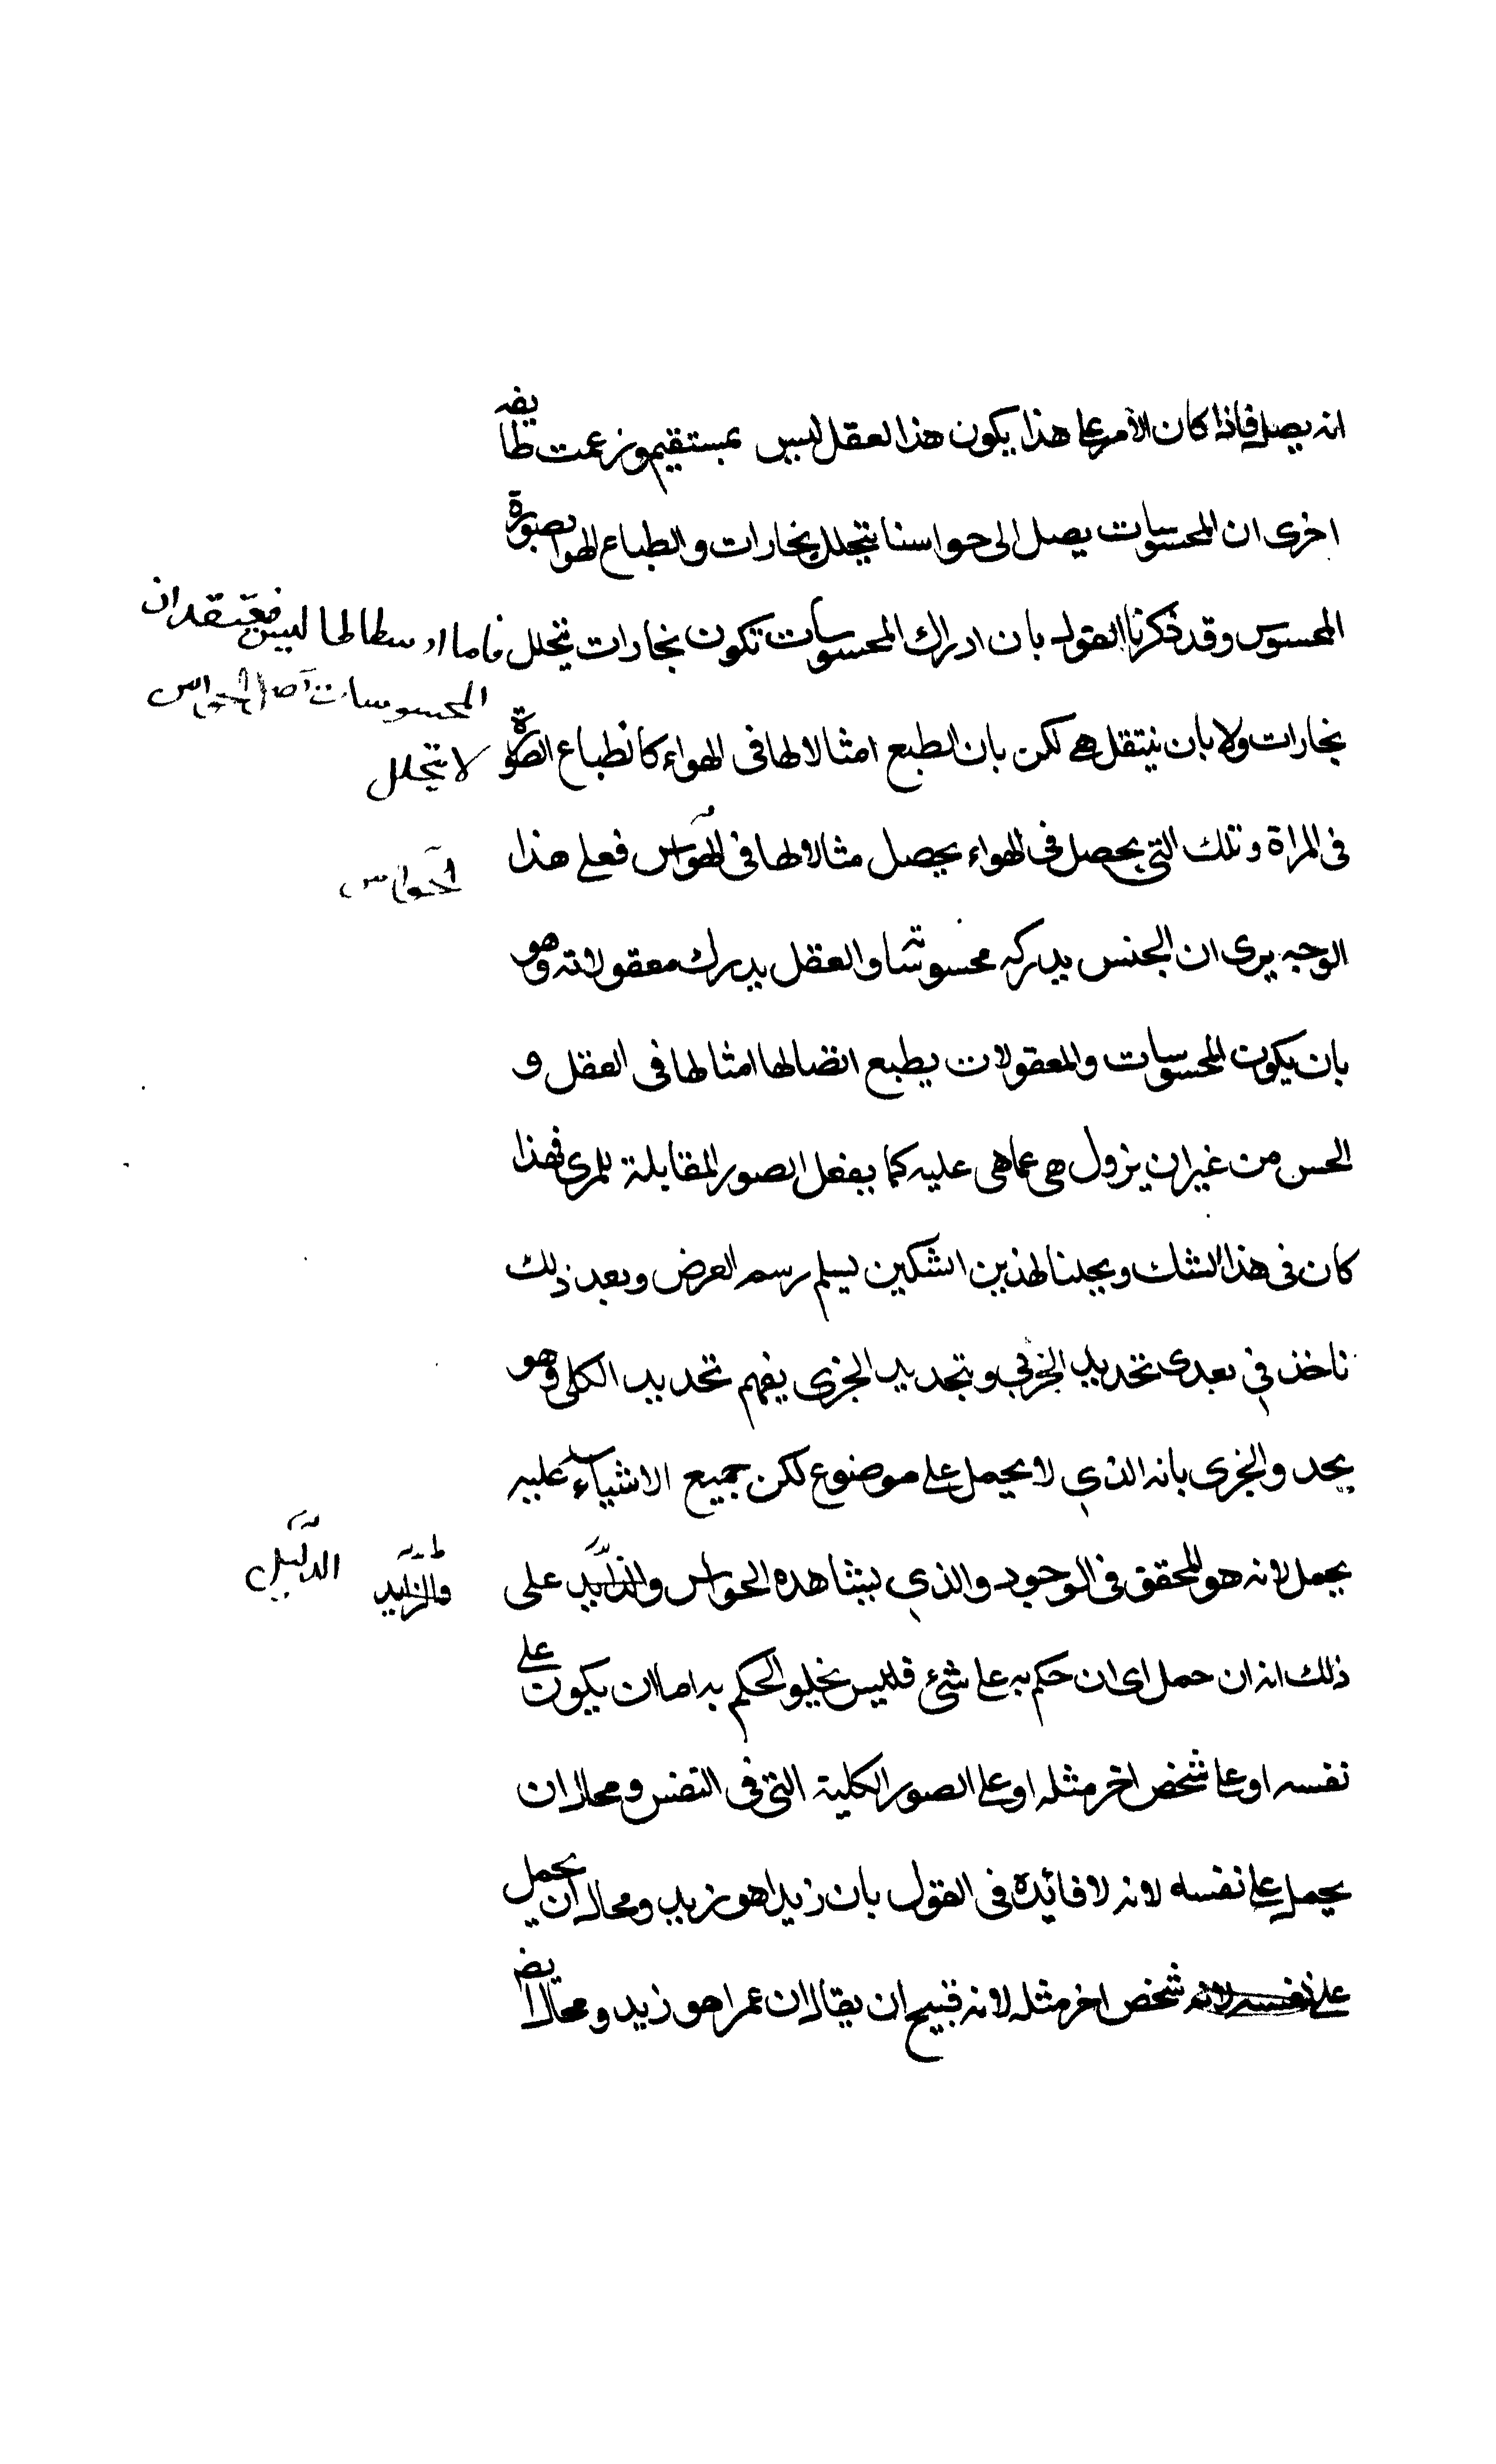 انه يصل فاذا كان الأمر على هذا يكون هذا العقل ليس بمستقيم وزعمت طايفه
اخرى ان المحسوسات يصل الى حواسنا بتحلل بخارات والطباع الهوا بصورة
المحسوس وقد ذكرنا القول بان ادراك المحسوسات تكون بخارات تتحلل فاما ارسطاطاليس فيعتقد ان
المحسوسات الحواس
بخارات ولا بان ينتقل هى لكن بان الطبع امثالا لها فى الهواء كانطباع الصورة
لا بتحلل
فى المراة وتلك التى يحصل فى الهواء يحصل مثالا لها فى الهواس فعلى هذا
الحواس
الوجه يرى ان الجنس يدركه محسوساته والعقل يدرك معقولاته وهو
بان يكون المحسوسات والمعقولات يطبع اتصالها امثالها فى العقل و
الحس من غير ان يزول هى عما هى عليه كما يفعل الصور المقابلة للمرى فهذا
كان فى هذا الشك وبحلنا لهذين الشكين يسلم رسم العرض وبعد ذلك
ناخذ في تحديد الجزئي وبتحديد الجزى يفهم تحديد الكلى وهو
يحد والجزى بانه الذي لا يحمل على موضوع لكن جميع الاشياء عليه
يحمل لانه هو المحقق فى الوجود والذي يشاهده الحواس والذايد على
الدليل
ذلك انه ان حمل اى ان حكم به على شئ فليس يخلو الحكم به اما ان يكون على
نفسه او على شخص اخر مثله او على الصور الكلية التى فى النفس ومحال ان
يحمل على نفسه لانه لا فائدة فى القول بان زيدا هو زيد ومحال ان يحمل
على نفسه لانه شخص اخر مثله لانه قبيح ان يقال ان عمرا هو زيد ومحال ايضا